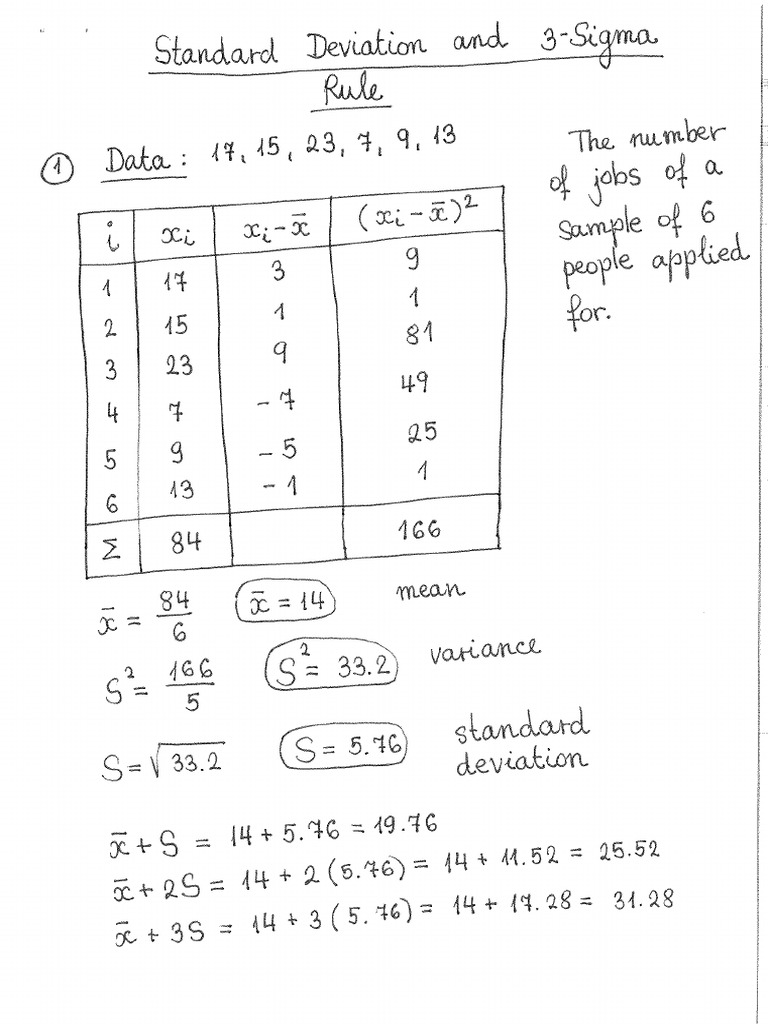 Standard Deviation and 3-Sigma
Rule
① Data: 17, 15, 23, 7, 9, 13
The number
of jobs of a
sample of 6
people applied
for.
i xᵢ xᵢ-x̄ (xᵢ-x̄)²
1 17 3 9
2 15 1 1
3 23 9 81
4 7 -7 49
5 9 -5 25
6 13 -1 1
Σ 84 166
x̄ = 84/6 x̄ = 14 mean
S² = 166/5 S² = 33.2 variance
S = √33.2 S = 5.76 standard
deviation
x̄ + S = 14 + 5.76 = 19.76
x̄ + 2S = 14 + 2(5.76) = 14 + 11.52 = 25.52
x̄ + 3S = 14 + 3(5.76) = 14 + 17.28 = 31.28